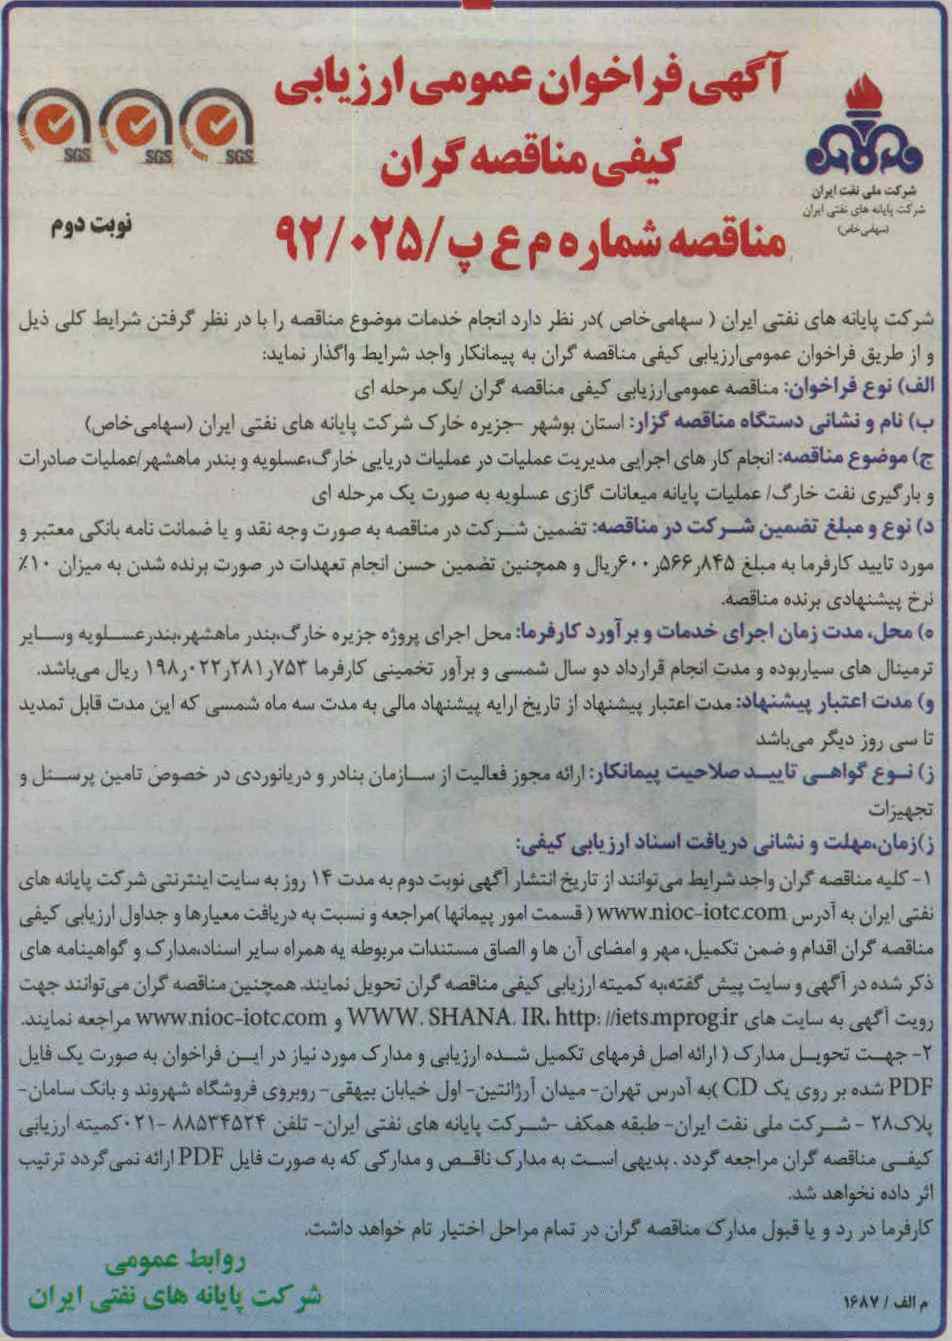 آگهی فراخوان عمومی ارزیابی
کیفی مناقصه گران
مناقصه شماره م ع پ /۹۲/۰۲۵
شرکت ملی نفت ایران
شرکت پایانه های نفتی ایران
(سهامی خاص)
SGS SGS SGS
نوبت دوم
شرکت پایانه های نفتی ایران ( سهامی خاص )در نظر دارد انجام خدمات موضوع مناقصه را با در نظر گرفتن شرایط کلی ذیل
و از طریق فراخوان عمومی ارزیابی کیفی مناقصه گران به پیمانکار واجد شرایط واگذار نماید:
الف) نوع فراخوان: مناقصه عمومی ارزیابی کیفی مناقصه گران /یک مرحله ای
ب) نام و نشانی دستگاه مناقصه گزار: استان بوشهر -جزیره خارک شرکت پایانه های نفتی ایران (سهامی خاص)
ج) موضوع مناقصه: انجام کار های اجرایی مدیریت عملیات در عملیات دریایی خارگ،عسلویه و بندر ماهشهر/عملیات صادرات
و بارگیری نفت خارگ/ عملیات پایانه میعانات گازی عسلویه به صورت یک مرحله ای
د) نوع و مبلغ تضمین شرکت در مناقصه: تضمین شرکت در مناقصه به صورت وجه نقد و یا ضمانت نامه بانکی معتبر و
مورد تایید کارفرما به مبلغ ۶۰۰٫۵۶۶٫۸۴۵ریال و همچنین تضمین حسن انجام تعهدات در صورت برنده شدن به میزان ۱۰٪
نرخ پیشنهادی برنده مناقصه.
ه) محل، مدت زمان اجرای خدمات و بر آورد کارفرما: محل اجرای پروژه جزیره خارگ،بندر ماهشهر،بندرعسلویه وسایر
ترمینال های سیاربوده و مدت انجام قرارداد دو سال شمسی و برآور تخمینی کارفرما ۱۹۸٫۰۲۲٫۲۸۱٫۷۵۳ ریال می‌باشد.
و) مدت اعتبار پیشنهاد: مدت اعتبار پیشنهاد از تاریخ ارایه پیشنهاد مالی به مدت سه ماه شمسی که این مدت قابل تمدید
تا سی روز دیگر می‌باشد
ز) نوع گواهی تایید صلاحیت پیمانکار: ارائه مجوز فعالیت از سازمان بنادر و دریانوردی در خصوص تامین پرسنل و
تجهیزات
ز)زمان،مهلت و نشانی دریافت اسناد ارزیابی کیفی:
۱- کلیه مناقصه گران واجد شرایط می‌توانند از تاریخ انتشار آگهی نوبت دوم به مدت ۱۴ روز به سایت اینترنتی شرکت پایانه های
نفتی ایران به آدرس www.nioc-iotc.com ( قسمت امور پیمانها )مراجعه و نسبت به دریافت معیارها و جداول ارزیابی کیفی
مناقصه گران اقدام و ضمن تکمیل، مهر و امضای آن ها و الصاق مستندات مربوطه به همراه سایر اسناد،مدارک و گواهینامه های
ذکر شده در آگهی و سایت پیش گفته،به کمیته ارزیابی کیفی مناقصه گران تحویل نمایند. همچنین مناقصه گران می‌توانند جهت
رویت آگهی به سایت های WWW. SHANA. IR، http: //iets.mprog.ir و www.nioc-iotc.com مراجعه نمایند.
۲- جهت تحویل مدارک ( ارائه اصل فرمهای تکمیل شده ارزیابی و مدارک مورد نیاز در این فراخوان به صورت یک فایل
PDF شده بر روی یک CD )به آدرس تهران- میدان آرژانتین- اول خیابان بیهقی- روبروی فروشگاه شهروند و بانک سامان-
پلاک۲۸ - شرکت ملی نفت ایران- طبقه همکف -شرکت پایانه های نفتی ایران- تلفن ۸۸۵۳۴۵۲۴ -۰۲۱کمیته ارزیابی
کیفی مناقصه گران مراجعه گردد . بدیهی است به مدارک ناقص و مدارکی که به صورت فایل PDF ارائه نمی گردد ترتیب
اثر داده نخواهد شد.
کارفرما در رد و یا قبول مدارک مناقصه گران در تمام مراحل اختیار تام خواهد داشت.
روابط عمومی
شرکت پایانه های نفتی ایران
م الف / ۱۶۸۷